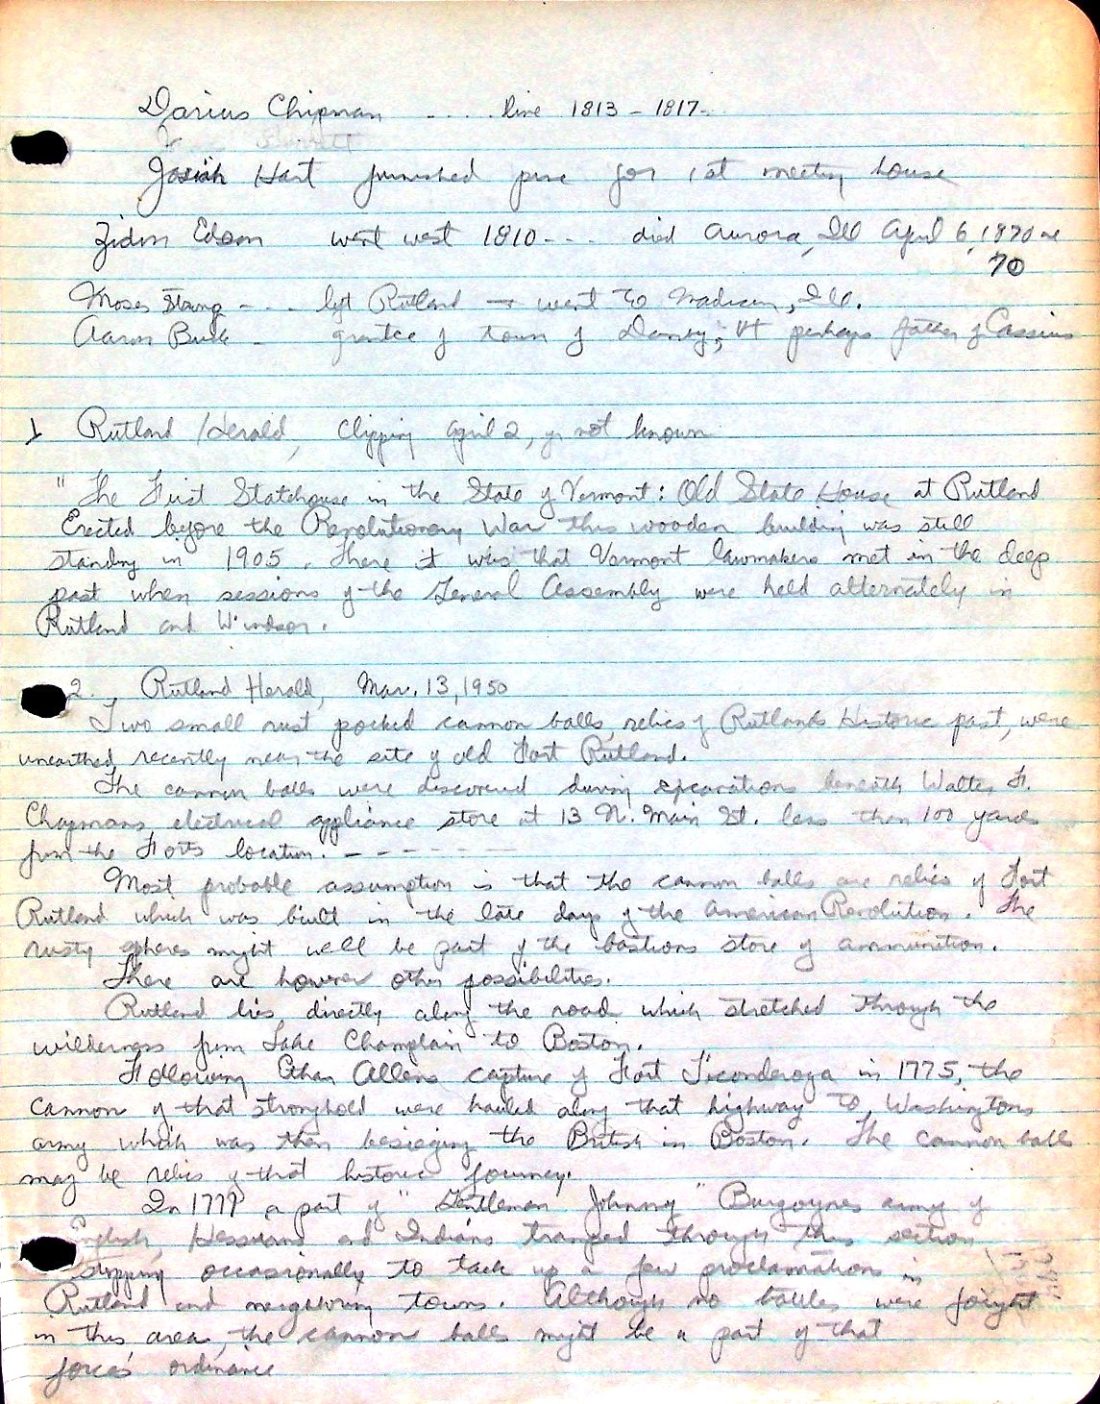 Darius Chipman .... line 1813 - 1817 -
Josiah Hart furnished pine for 1st meeting house
Zidon Edson went west 1810 - - . died Aurora, Ill April 6, 1870 ae
70
Moses Strong - - . . left Rutland → went to Madison, Ill.
Aaron Buck - grantee of town of Danby, Vt perhaps father of Cassius
1 Rutland Herald, Clipping April 2, yr not known
"The First Statehouse in the State of Vermont: Old State House at Rutland
Erected before the Revolutionary War this wooden building was still
standing in 1905. There it was that Vermont lawmakers met in the deep
past when sessions of the General Assembly were held alternately in
Rutland and Windsor.
2. Rutland Herald, Mar. 13, 1950
Two small rust pocked cannon balls, relics of Rutlands Historic past, were
unearthed recently near the site of old Fort Rutland.
The cannon balls were discovered during excavations beneath Walter F.
Chapmans electrical appliance store at 13 N. Main St. less than 100 yards
from the Forts location. - - - - - -
Most probable assumption is that the cannon balls are relics of Fort
Rutland which was built in the late days of the American Revolution. The
rusty spheres might well be part of the bastions store of ammunition.
There are however other possibilities.
Rutland lies directly along the road which stretched through the
wilderness from Lake Champlain to Boston.
Following Ethan Allens capture of Fort Ticonderoga in 1775, the
cannon of that stronghold were hauled along that highway to Washingtons
army which was then besieging the British in Boston. The cannon balls
may be relics of that historic journey.
In 1777 a part of "Gentleman Johnny" Burgoynes army of
English, Hessians and Indians tramped through this section
stopping occasionally to tack up a few proclamations in
Rutland and neighboring towns. Although no battles were fought
in this area, the cannon balls might be a part of that
forces' ordinance